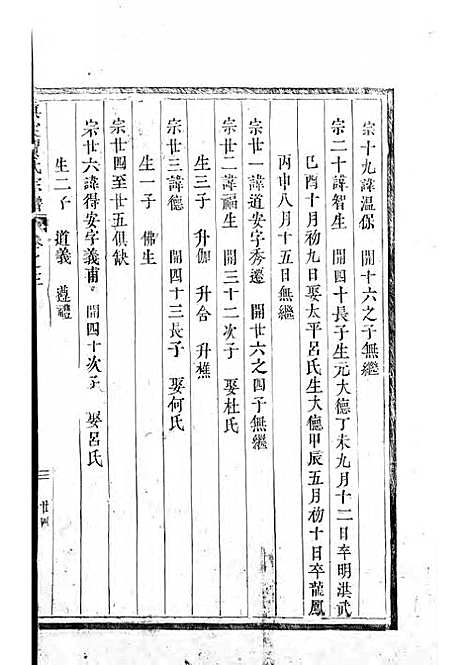 宗十九諱溫保　開十六之子無繼
宗二十諱智生　開四十長子生元大德丁未九月十二日卒明洪武
巳酉十月初九日娶太平呂氏生大德甲辰五月初十日卒龍鳳
丙申八月十五日無繼
宗廿一諱道安字秀遷　開廿六之四子無繼
宗廿二諱福生　開三十二次子　娶杜氏
生三子　升伽　升合　升樵
宗廿三諱德　開四十三長子　娶何氏
生一子　佛生
宗廿四至廿五俱缺
宗廿六諱得安字義甫　開四十次子　娶呂氏
生二子　道義　遵禮
氏宗譜
廿四